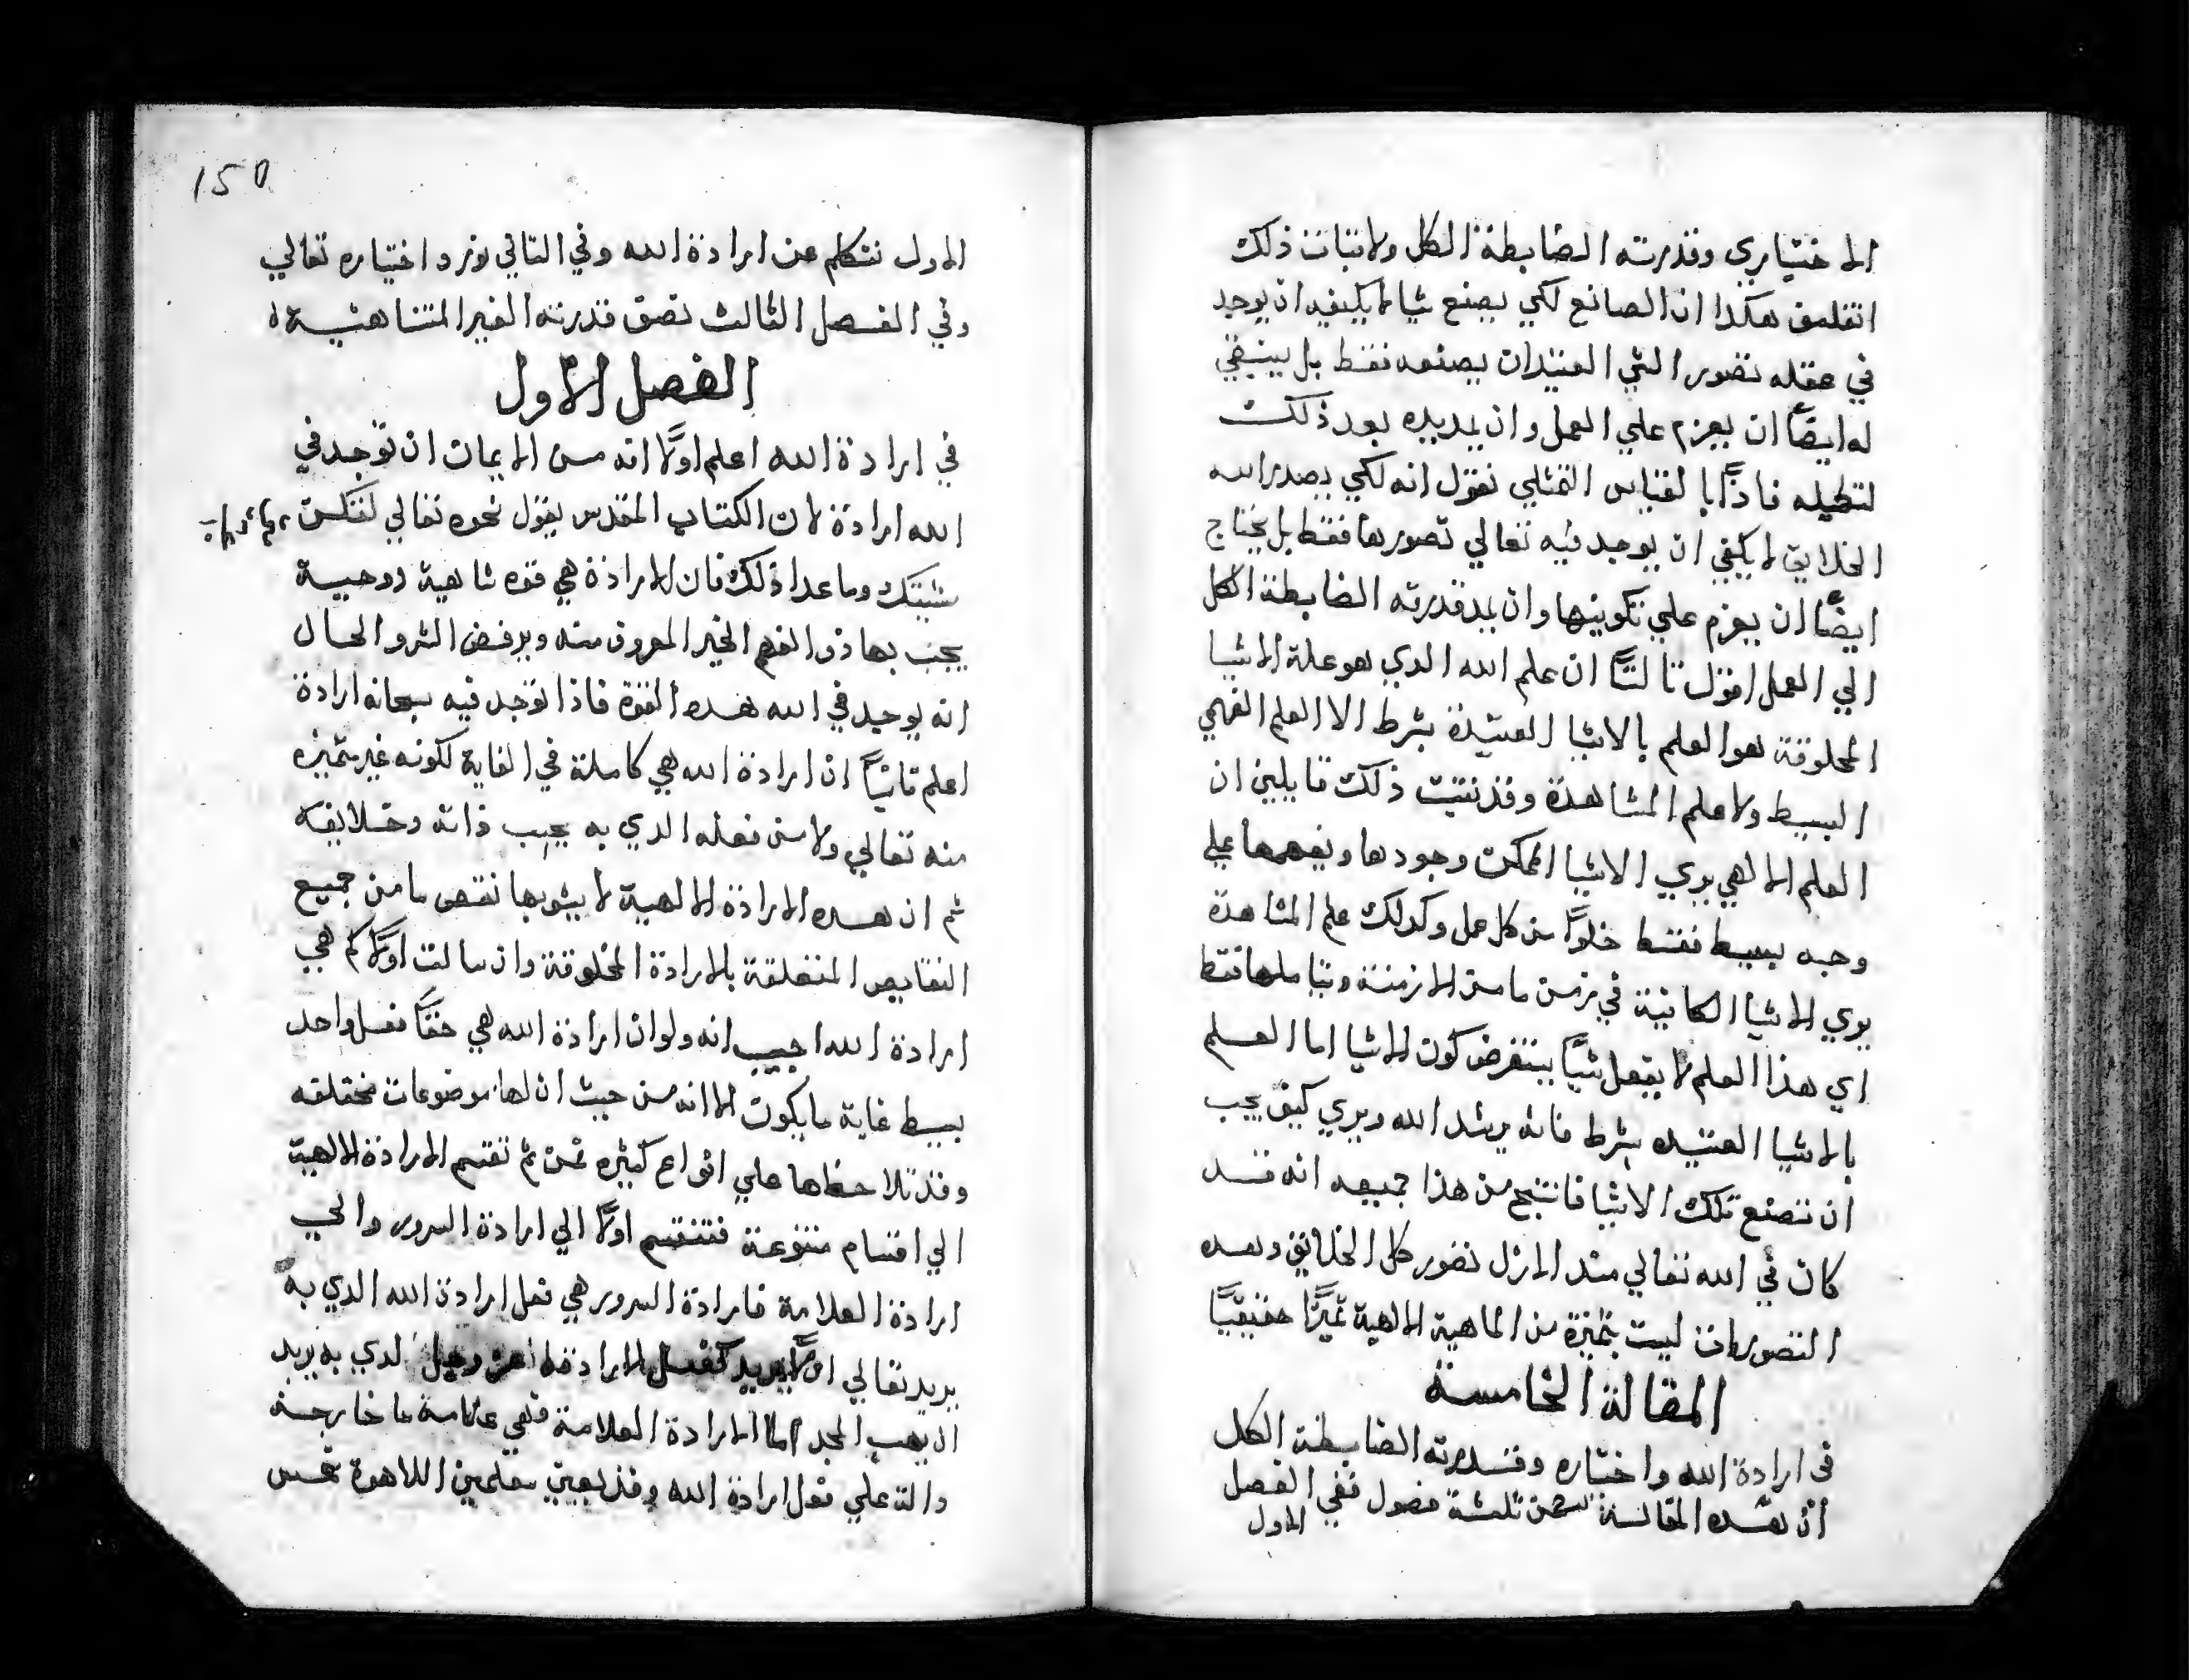 الاختياري وقدرته الضابطة الكل ولاتبات ذلك
اتفلسف هكذا ان الصانع لكي يصنع شيا لا يكفيه ان يوجد
في عقله تصور الشي العتيدان يصنعه فقط بل ينبغي
له ايضًا ان يعزم علي العمل وان يمد يده بعد ذلك
لتكميله فاذًا بالقياس التمثلي نقول انه لكي يصدر الله
الخلايق لا يكفي ان يوجد فيه تعالي تصورها فقط بل يحتاج
ايضًا ان يعزم علي تكوينها وان يمد قدرته الضابطة الكل
الي العمل اقول تالتًا ان علم الله الدي هو علة الاشيا
المخلوقة هو العلم بالاشيا العتيدة بشرط لا العلم الفهمي
البسيط ولا علم المشاهدة وقد نتبت ذلك قايلين ان
العلم الالهي يري الاشيا الممكن وجودها ويفهمها علي
وجه بسيط فقط خلوًا من كل عمل وكدلك علم المشاهدة
يري الاشيا الكاينة في زمن ما من الازمنة ويتاملها فقط
اي هذا العلم لا يفعل شيًا بيتفرض كون الاشيا اما العلم
بالاشيا العتيده بشرط فانه يرشد الله ويري كيف يجب
ان تصنع تلك الاشيا فانتج من هذا جميعه انه قد
كان في الله تعالي مند الازل تصور كل الخلايق وهده
التصورات ليست بتميزة من الماهية الالهية تميزًا حقيقيًا
المقالة الخامسة
في ارادة الله واختياره وقدرته الضابطة الكل
ان هده المقالة تتضمن تلثة فصول ففي الفصل
الاول
150
الاول نتكلم عن ارادة الله وفي التاني نورد اختياره تعالي
وفي الفصل الثالث نصف قدرته الغير المتناهية
الفصل الاول
في ارادة الله اعلم اولًا انه من الايمان ان توجد في
الله ارادة لان الكتاب المقدس يقول نحوه تعالي لتكن
مشيتك وما عدا ذلك فان الارادة هي قوه شاهية روحية
يحب بها ذو الفهم الخير المعروف منه ويرفض الشر والحال
انه يوجد في الله هده القوة فاذا توجد فيه سبحانه ارادة
اعلم تانيًا ان ارادة الله هي كاملة في الغاية لكونه غير متميزه
منه تعالي ولا من فعله الدي به يحب ذاته وخلايقه
ثم ان هده الارادة الالهية لا يشوبها نقص ما من جميع
النقايص المتعلقة بالارادة المخلوقة وان سالت اولًا كم هي
ارادة الله اجيب انه ولو ان ارادة الله هي حقًا فعل واحد
بسيط غاية ما يكون الا انه من حيث ان لها موضوعات مختلفه
وقد تلاحظها علي انواع كتيره فمن ثم تقسم الارادة الالهية
الي اقسام متنوعة فتنقسم اولًا الي ارادة السرور والي
ارادة العلامة فارادة السرور هي فعل ارادة الله الدي به
يريد تعالي اولًا يريد كفعل الارادة عز وجل الدي به يريد
ان يهب المجد اما الارادة العلامة فهي علامة ما خارجة
دالة علي فعل ارادة الله وقد يعين معلمين اللاهوة خمس